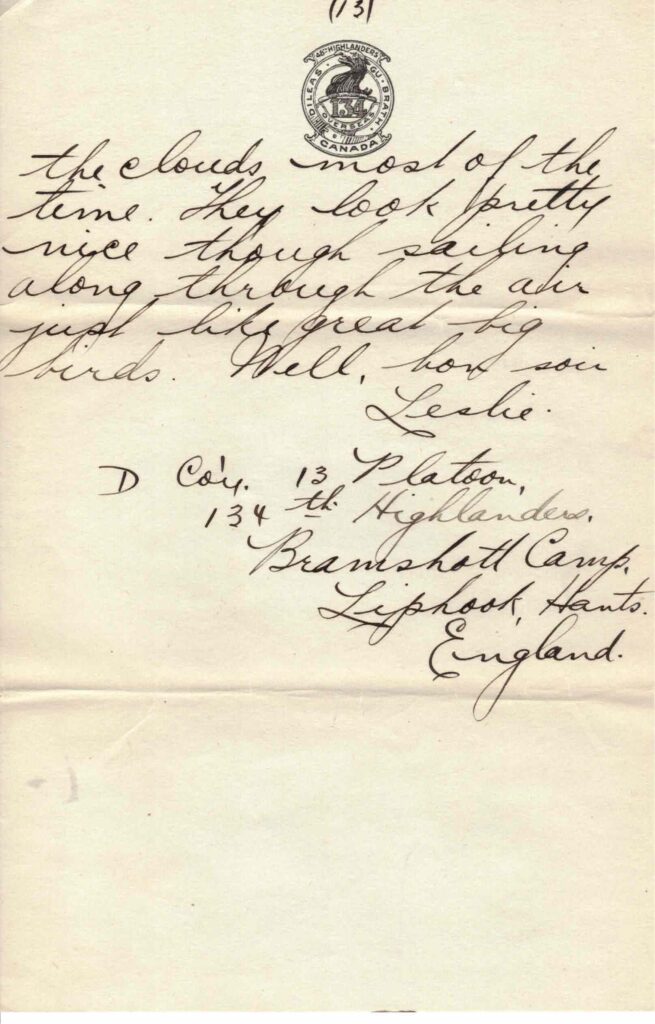 (13)
48TH HIGHLANDERS
DILEAS GU BRATH
134
OVERSEAS
CANADA
the clouds most of the
time. They look pretty
nice though sailing
along through the air
just like great big
birds. Well, bon soir
Leslie.
D Co'y. 13 Platoon,
134th Highlanders,
Bramshott Camp,
Liphook, Hants.
England.